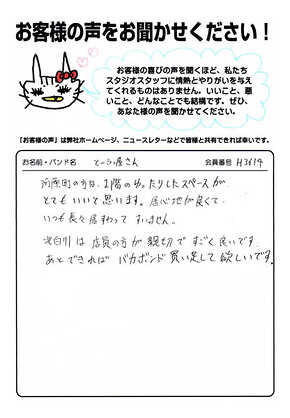 お客様の声をお聞かせください！
お客様の喜びの声を聞くほど、私たち
スタジオスタッフに情熱とやりがいを与え
てくれるものはありません。いいこと、悪
いこと、どんなことでも結構です。ぜひ、
あなた様の声を聞かせてください。
「お客様の声」は弊社ホームページ、ニュースレターなどで皆様と共有できれば幸いです。
お名前・バンド名 とーふ屋さん 会員番号 H3614
河原町の方は、2階のゆったりしたスペースが
とてもいいと思います。居心地が良くて
いつも長々居すわって すいません。
北白川は店員の方が親切ですごく良いです。
あとできれば バガボンド買い足して欲しいです。